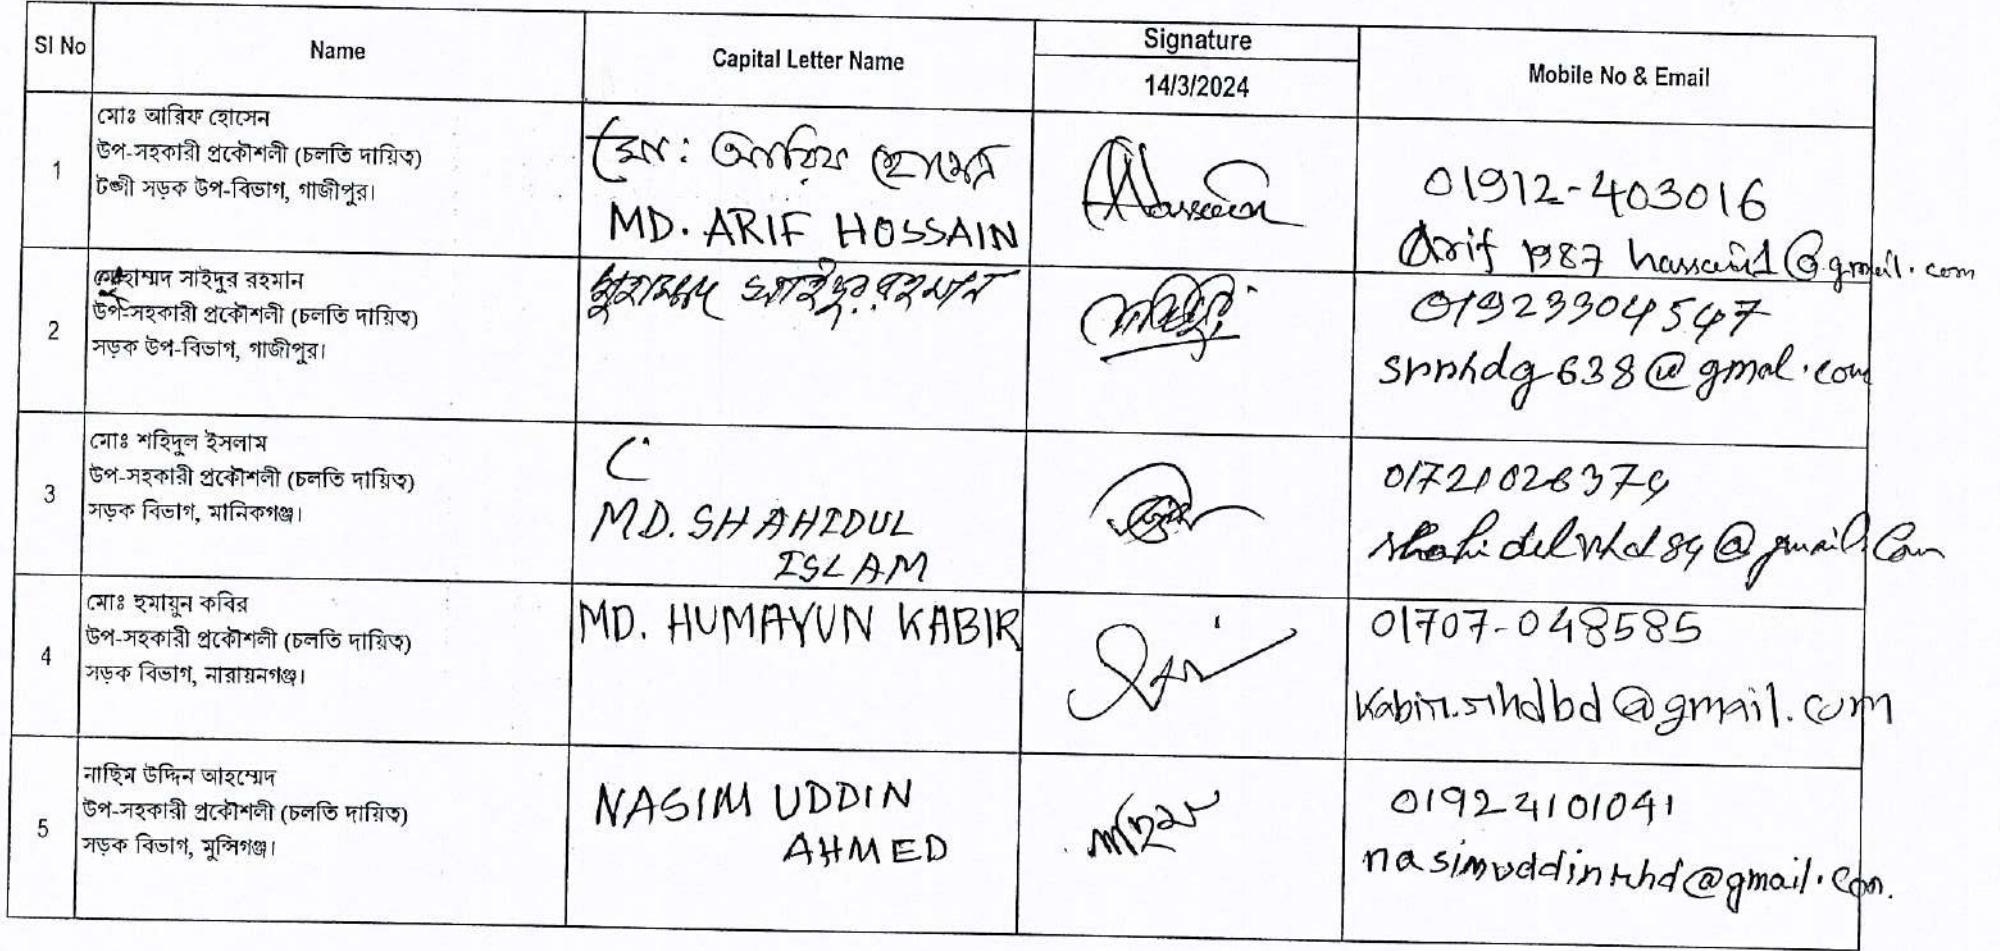 Sl No
Name
Capital Letter Name
Signature
14/3/2024
Mobile No & Email
1
মোঃ আরিফ হোসেন
উপ-সহকারী প্রকৌশলী (চলতি দায়িত্ব)
টঙ্গী সড়ক উপ-বিভাগ, গাজীপুর।
মো: আরিফ হোসেন
MD. ARIF HOSSAIN
01912-403016
2
মুহাম্মদ সাইদুর রহমান
উপ-সহকারী প্রকৌশলী (চলতি দায়িত্ব)
সড়ক উপ-বিভাগ, গাজীপুর।
মুহাম্মদ সাইদুর রহমান
01923304547
3
মোঃ শহিদুল ইসলাম
উপ-সহকারী প্রকৌশলী (চলতি দায়িত্ব)
সড়ক বিভাগ, মানিকগঞ্জ।
MD. SHAHIDUL
ISLAM
4
মোঃ হুমায়ুন কবির
উপ-সহকারী প্রকৌশলী (চলতি দায়িত্ব)
সড়ক বিভাগ, নারায়নগঞ্জ।
MD. HUMAYUN KABIR
01707-048585
kabir.rhdbd@gmail.com
5
নাছিম উদ্দিন আহম্মেদ
উপ-সহকারী প্রকৌশলী (চলতি দায়িত্ব)
সড়ক বিভাগ, মুন্সিগঞ্জ।
NASIM UDDIN
AHMED
01924101041
nasimuddinrhd@gmail.com.